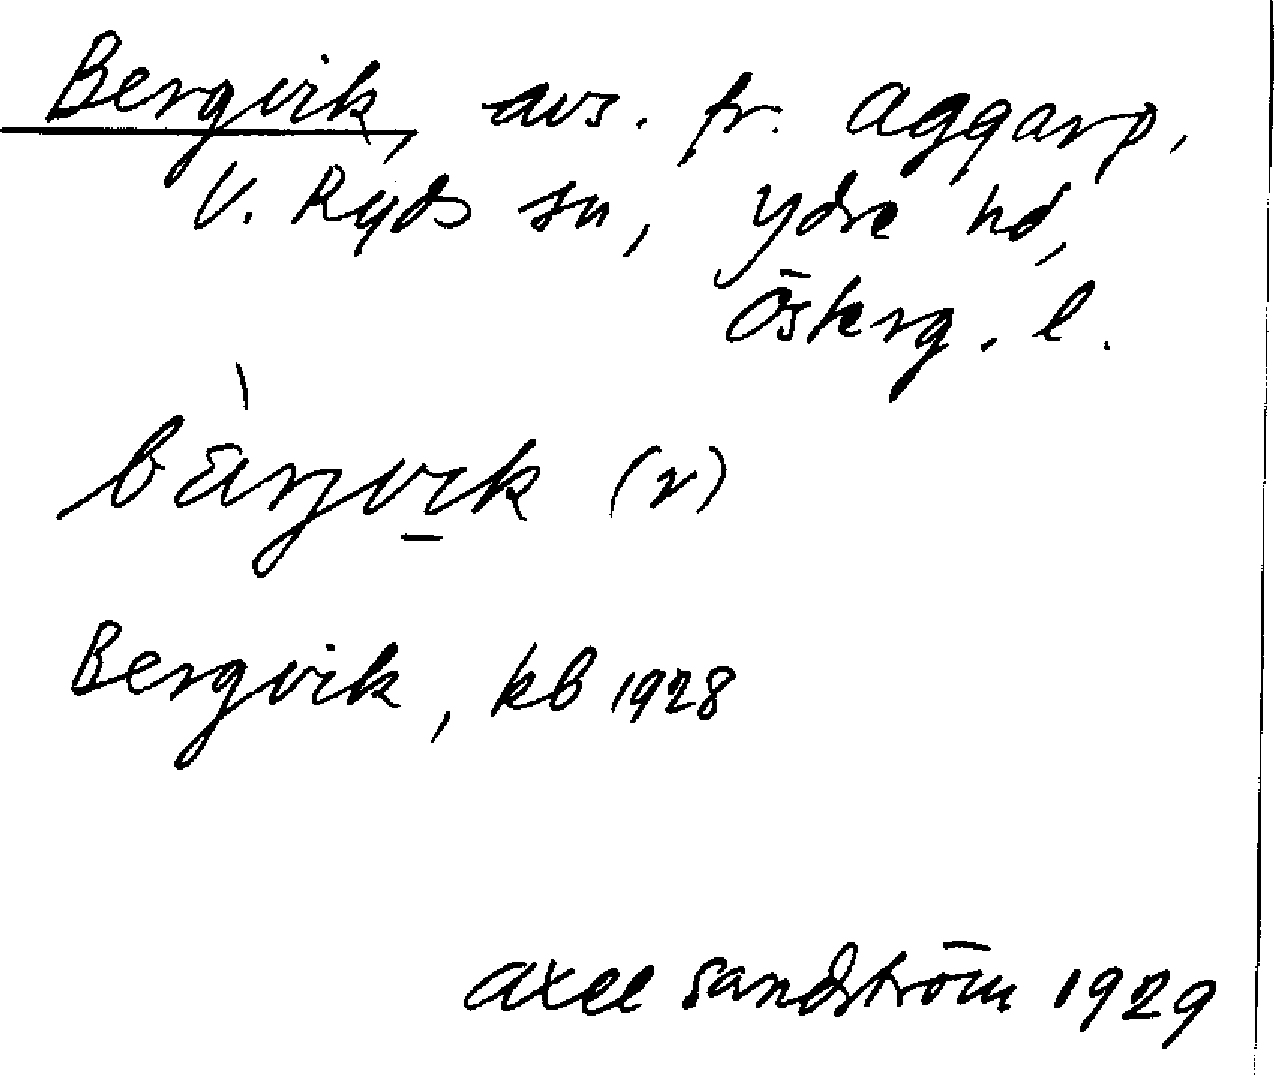 Bergvik, avs. fr. Aggarp,
V. Ryds sn, Ydre hd,
Österg. l.
bàrjvik (r)
Bergvik, kb 1928
Axel Sandström 1929